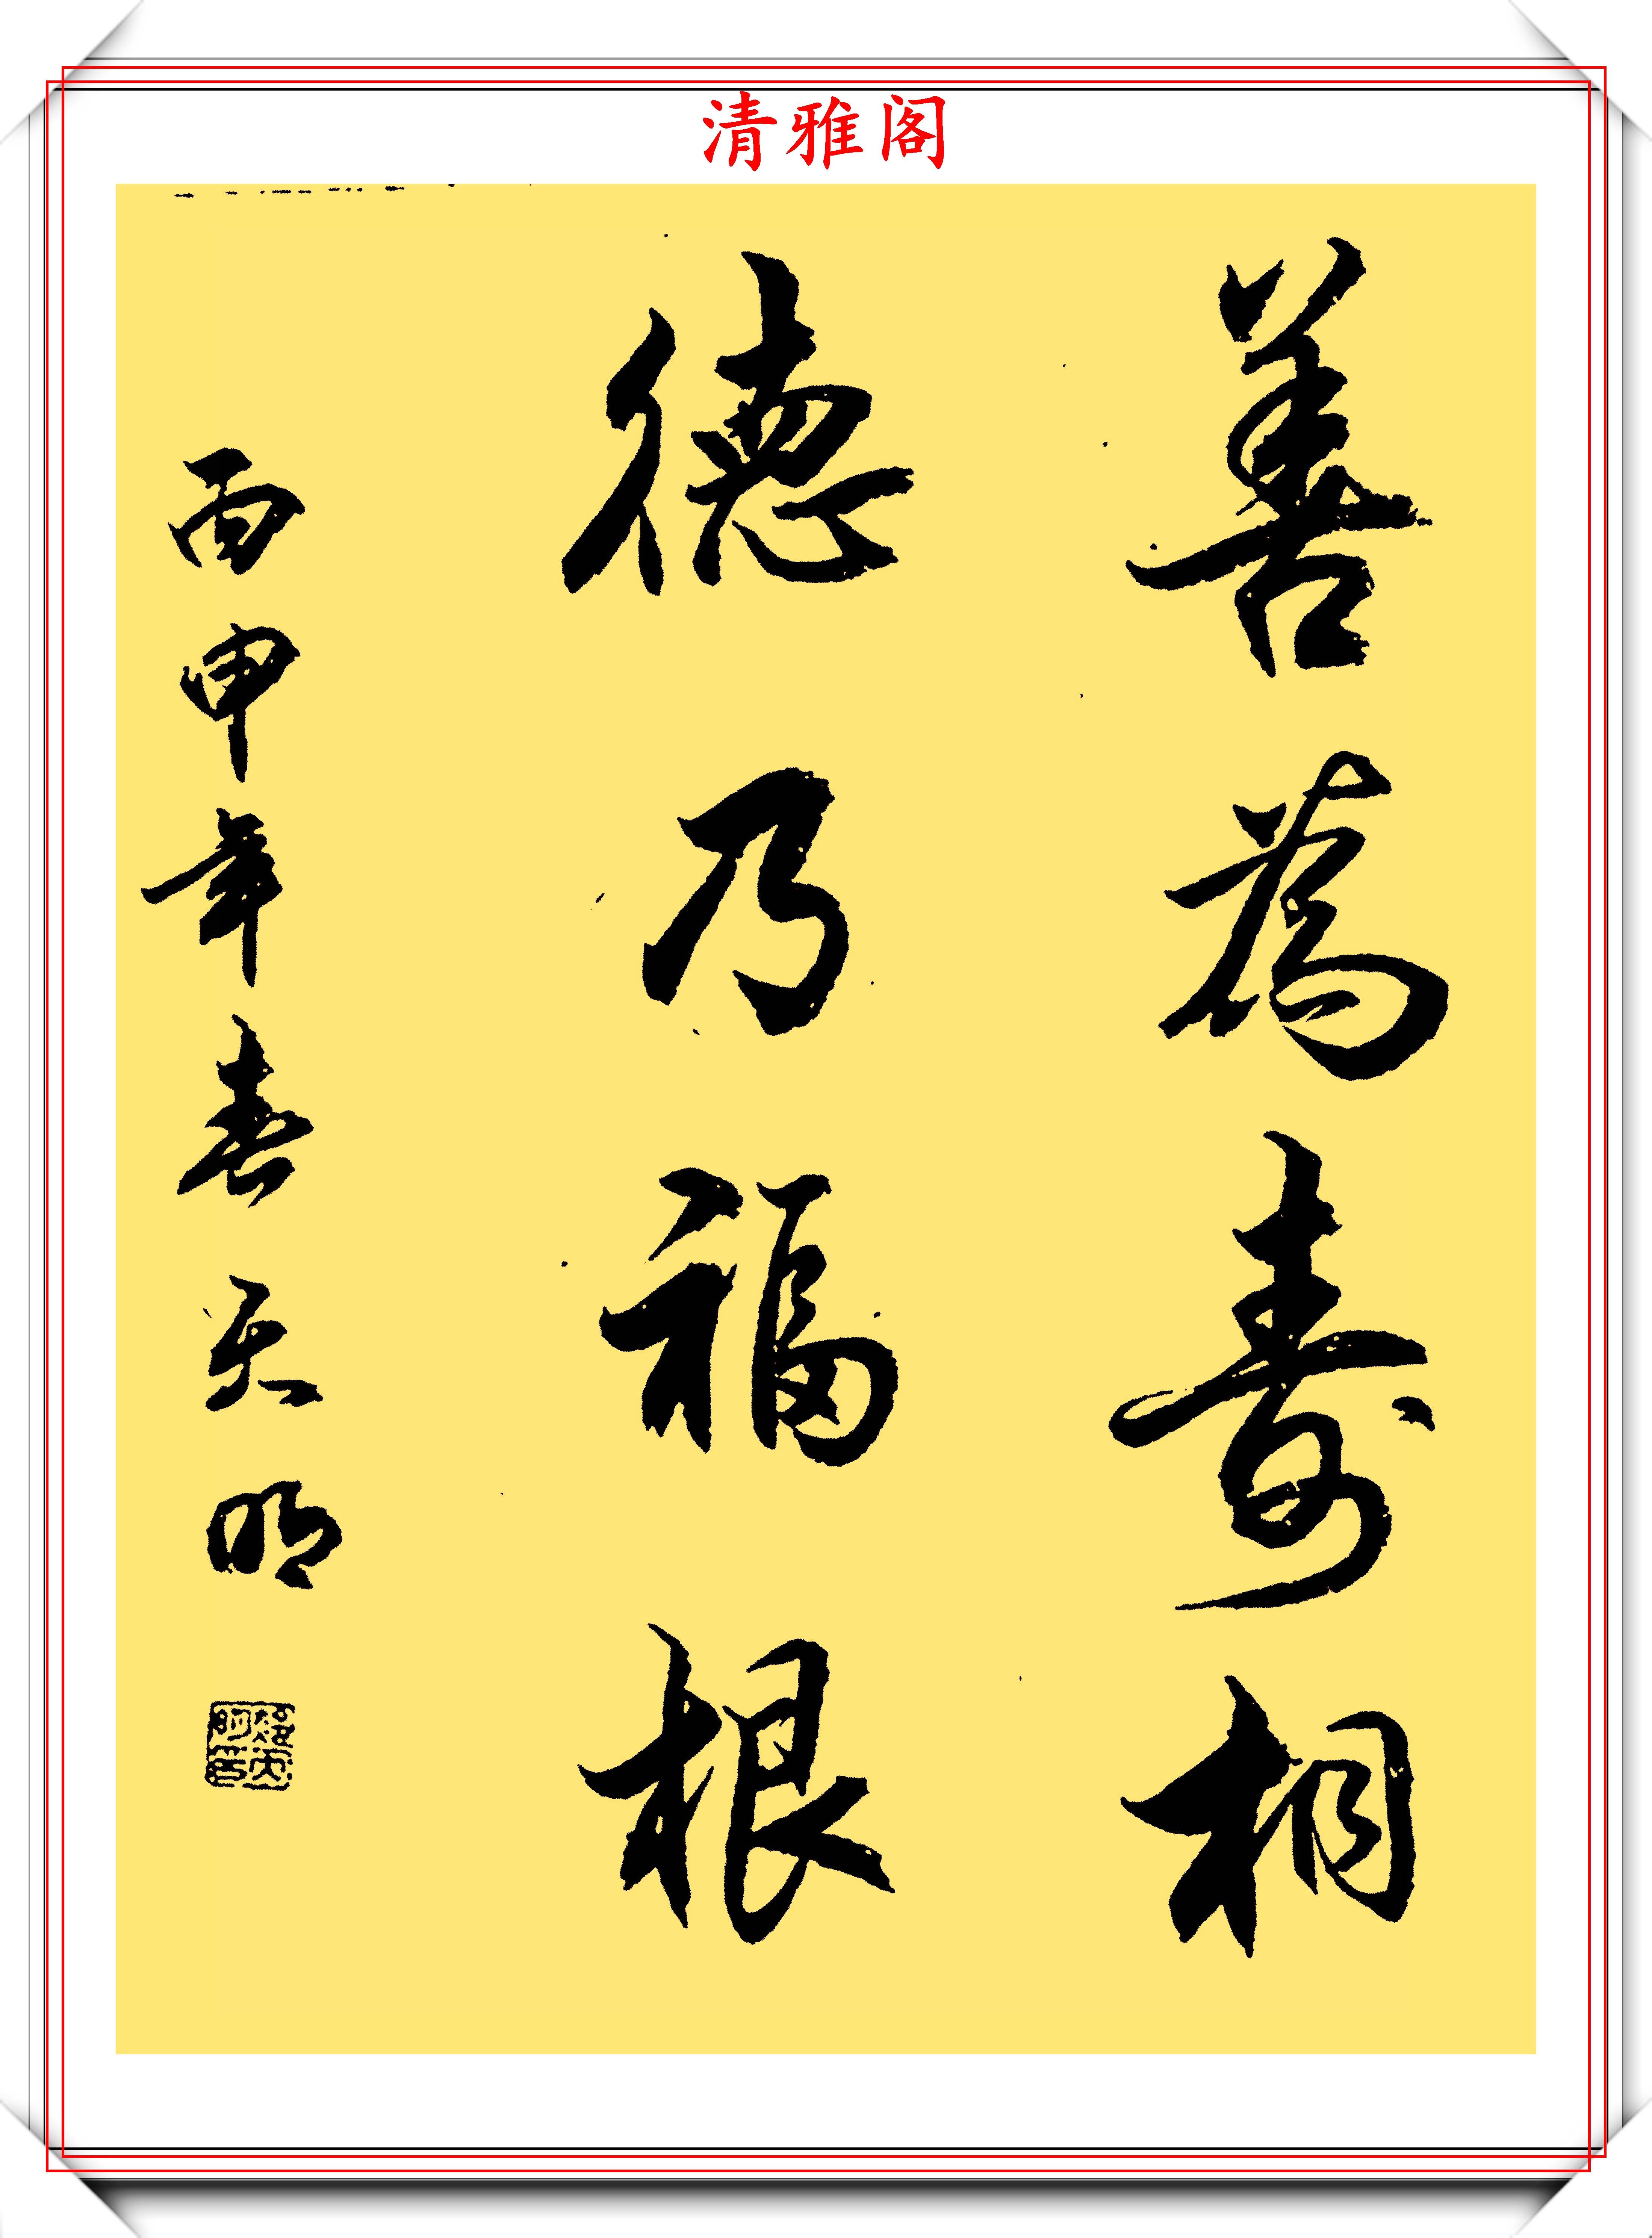 清雅阁
善為壽相
德乃福根
丙申年春天明